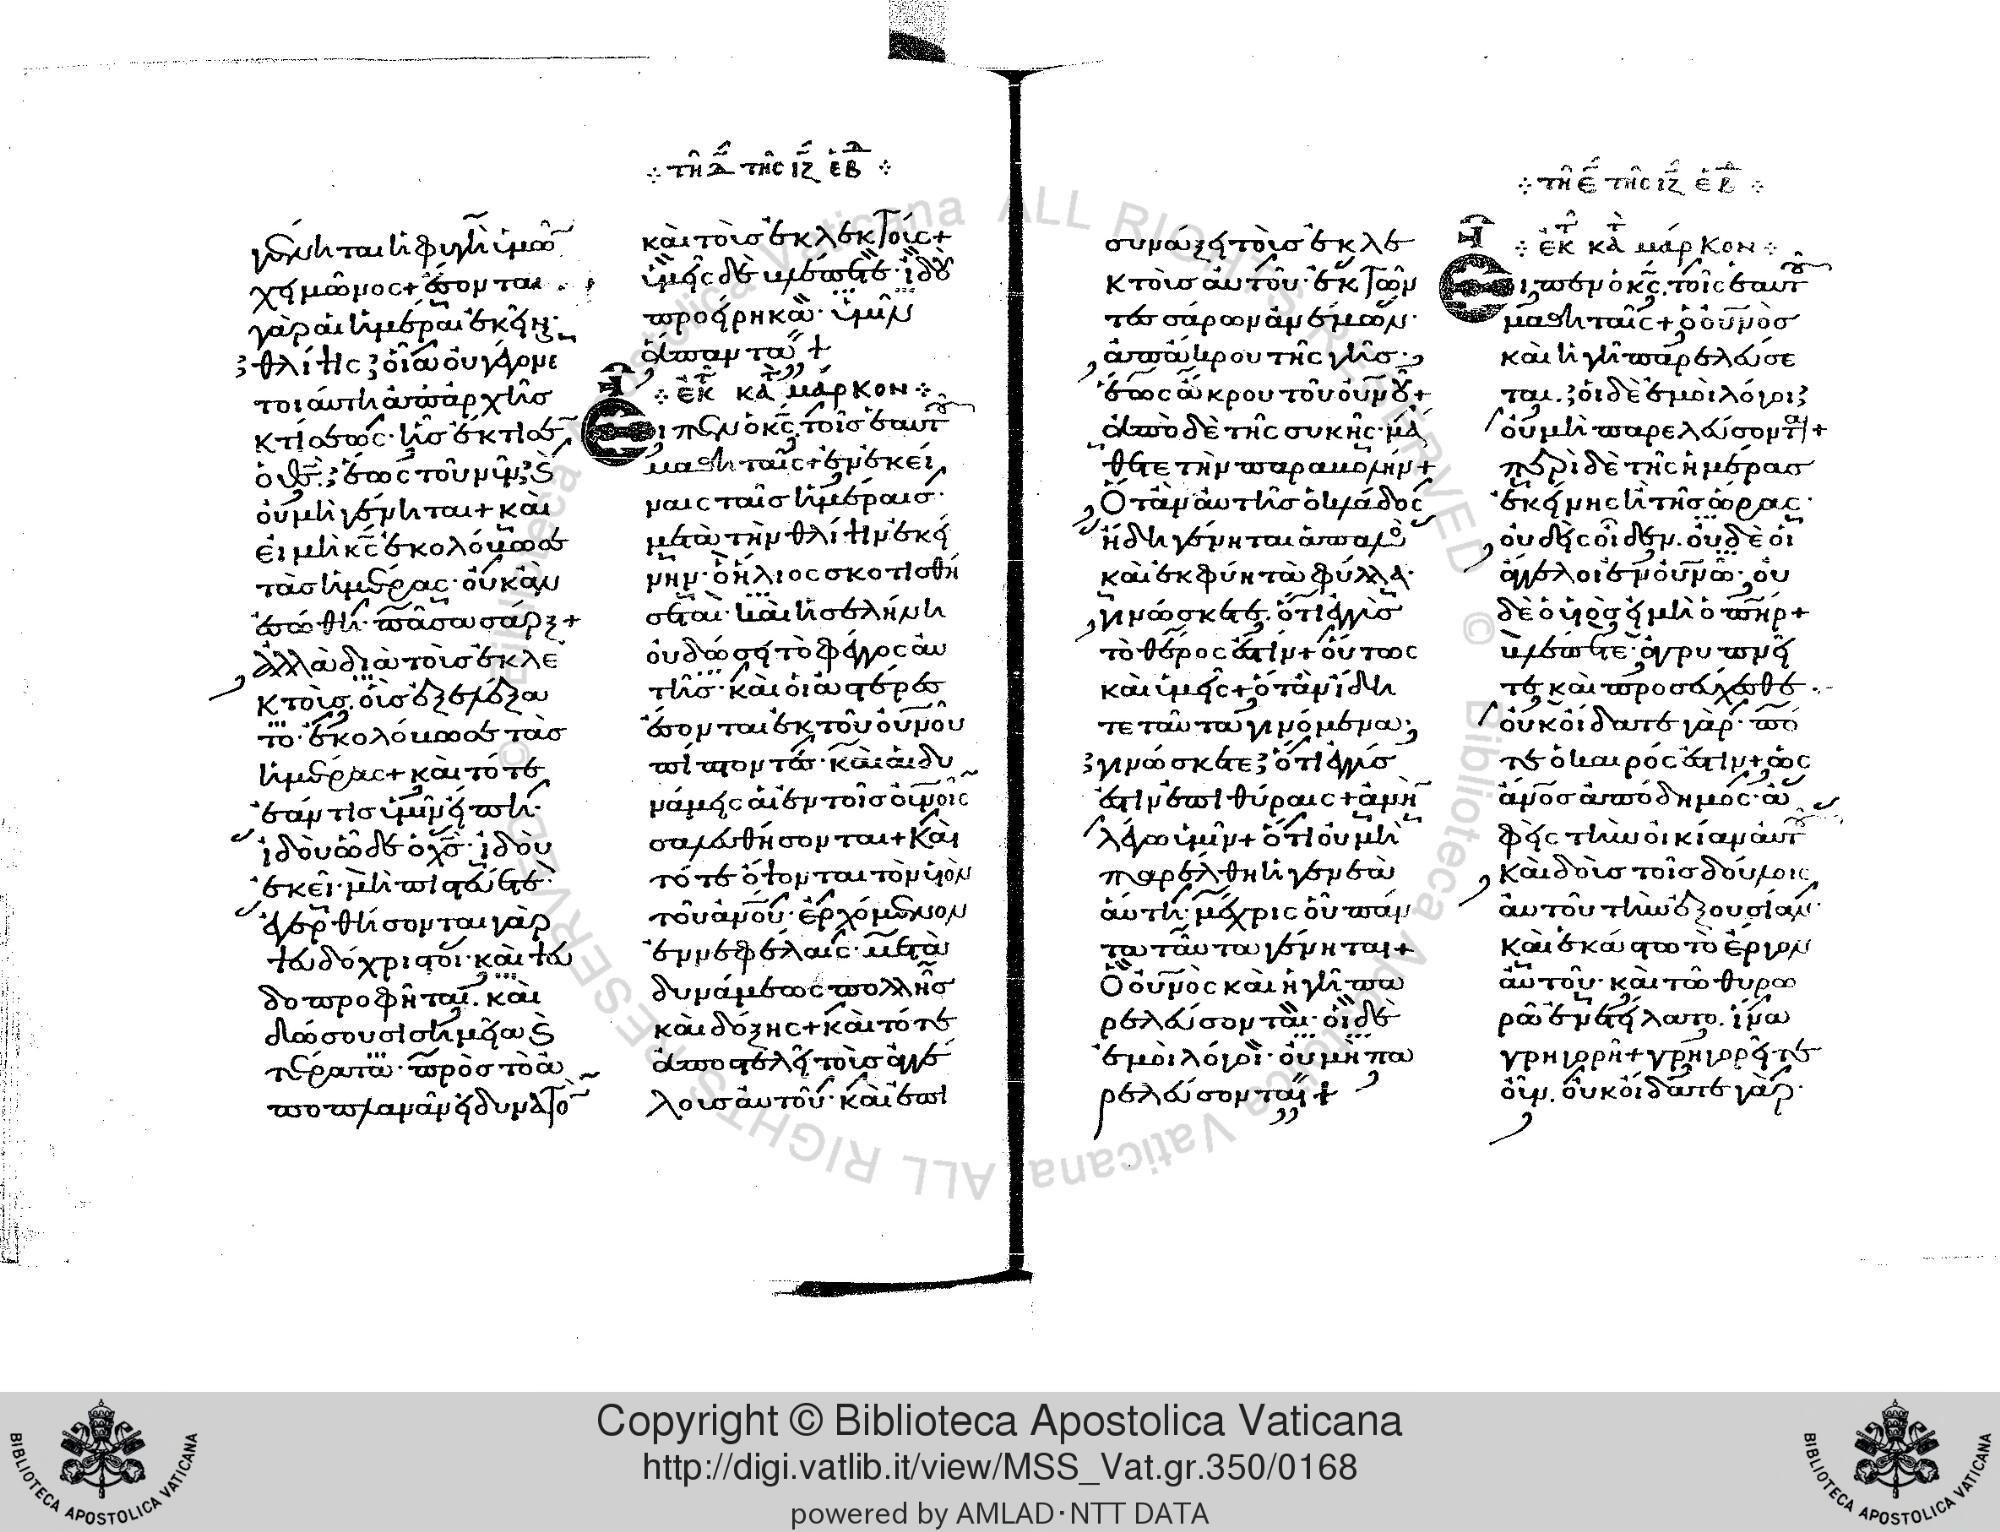 ∻ τῆ Δ τῆς ιζ ἑβδ ∻
γένηται ἡ φυγὴ ὑμῶ
χειμῶνος + ἔσονται
γὰρ αἱ ἡμέραι ἐκεῖναι
θλίψις οἵα οὐ γέγονε
τοιαύτη ἀπ' ἀρχῆς
κτίσεως· ἧς ἔκτισεν
ὁ θς ἕως τοῦ νῦν καὶ
οὐ μὴ γένηται + καὶ
εἰ μὴ κς ἐκολόβωσε
τὰς ἡμέρας· οὐκ ἂν
ἐσώθη πᾶσα σάρξ +
ἀλλὰ διὰ τοὺς ἐκλε
κτοὺς οὓς ἐξελέξα
το· ἐκολόβωσε τὰς
ἡμέρας + καὶ τότε
ἐάν τις ὑμῖν εἴπη·
ἰδοὺ ὧδε ὁ χς· ἰδοὺ
ἐκεῖ· μὴ πιστεύετε·
ἐγερθήσονται γὰρ
ψευδόχριστοι· καὶ ψευ
δοπροφῆται· καὶ
δώσουσι σημεῖα καὶ
τέρατα· πρὸς τὸ ἀ
ποπλανᾶν εἰ δυνατὸ
καὶ τοὺς ἐκλεκτούς +
ὑμεῖς δὲ βλέπετε· ἰδοὺ
προείρηκα ὑμῖν
ἅπαντα +
∻ ἐκ τ κατ μάρκον ∻
Εἶπεν ὁ κς τοῖς ἑαυτοῦ
μαθηταῖς + ἐν ἐκεί
ναις ταῖς ἡμέραις·
μετὰ τὴν θλίψιν ἐκεί
νην· ὁ ἥλιος σκοτισθή
σεται· καὶ ἡ σελήνη
οὐ δώσει τὸ φέγγος αὐ
τῆς· καὶ οἱ ἀστέρες
ἔσονται ἐκ τοῦ οὐνοῦ
πίπτοντες· καὶ αἱ δυ
νάμεις αἱ ἐν τοῖς οὐνοῖς
σαλευθήσονται + Καὶ
τότε ὄψονται τὸν υἱὸν
τοῦ ἀνου· ἐρχόμενον
ἐν νεφέλαις· μετὰ
δυνάμεως πολλῆς
καὶ δόξης + καὶ τότε
ἀποστελεῖ τοὺς ἀγγέ
λους αὐτοῦ· καὶ ἐπι
∻ τῆ Ε τῆς ιζ ἑβδ ∻
συνάξει τοὺς ἐκλε
κτοὺς αὐτοῦ· ἐκ τῶν
τεσσάρων ἀνέμων·
ἀπ' ἄκρου τῆς γῆς·
ἕως ἄκρου τοῦ οὐνοῦ +
ἀπὸ δὲ τῆς συκῆς· μά
θετε τὴν παραβολήν +
Ὅταν αὐτῆς ὁ κλάδος
ἤδη γένηται ἁπαλὸς
καὶ ἐκφύη τὰ φύλλα·
γινώσκετε· ὅτι ἐγγὺς
τὸ θέρος ἐστίν + οὕτως
καὶ ὑμεῖς + ὅταν ἴδη
τε ταῦτα γινόμενα·
γινώσκετε ὅτι ἐγγύς
ἐστιν ἐπὶ θύραις + ἀμὴν
λέγω ὑμῖν + ὅτι οὐ μὴ
παρέλθη ἡ γενεὰ
αὕτη· μέχρις οὗ πάν
τα ταῦτα γένηται +
Ὁ οὐνος καὶ ἡ γῆ πα
ρελεύσονται· οἱ δὲ
ἐμοὶ λόγοι· οὐ μὴ πα
ρελεύσονται +
∻ ἐκ τ κατ μάρκον ∻
Εἶπεν ὁ κς τοῖς ἑαυτοῦ
μαθηταῖς + ὁ οὐνὸς
καὶ ἡ γῆ παρελεύσε
ται· οἱ δὲ ἐμοὶ λόγοι
οὐ μὴ παρελεύσονται +
περὶ δὲ τῆς ἡμέρας
ἐκείνης ἢ τῆς ὥρας·
οὐδεὶς οἶδεν· οὐδὲ οἱ
ἄγγελοι ἐν οὐνω· οὐ
δὲ ὁ υἱὸς εἰ μὴ ὁ πηρ +
βλέπετε· ἀγρυπνεῖ
τε καὶ προσεύχεσθε·
οὐκ οἴδατε γὰρ· πό
τε ὁ καιρός ἐστιν + ὡς
ἀνος ἀπόδημος· ἀ
φεὶς τὴν οἰκίαν αὐτοῦ
καὶ δοὺς τοῖς δούλοις
αὐτοῦ τὴν ἐξουσίαν·
καὶ ἑκάστω τὸ ἔργον
αὐτοῦ· καὶ τῶ θυρω
ρῶ ἐνετείλατο· ἵνα
γρηγορῆ + γρηγορεῖτε
οὖν· οὐκ οἴδατε γάρ·
Copyright © Biblioteca Apostolica Vaticana
http://digi.vatlib.it/view/MSS_Vat.gr.350/0168
powered by AMLAD·NTT DATA
BIBLIOTECA APOSTOLICA VATICANA
BIBLIOTECA APOSTOLICA VATICANA